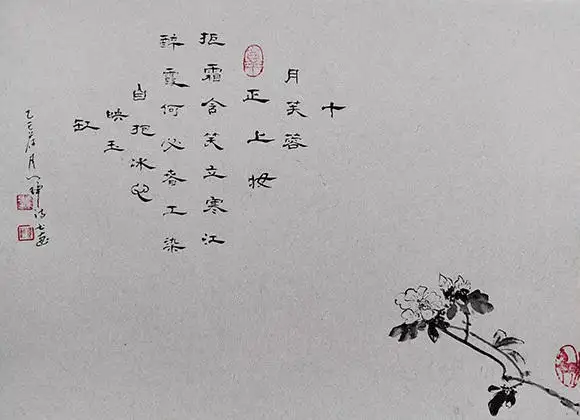 十
月芙蓉
正上妆
拒霜含笑立寒江
醉霞何必春工染
自抱冰心
映玉
缸
乙巳